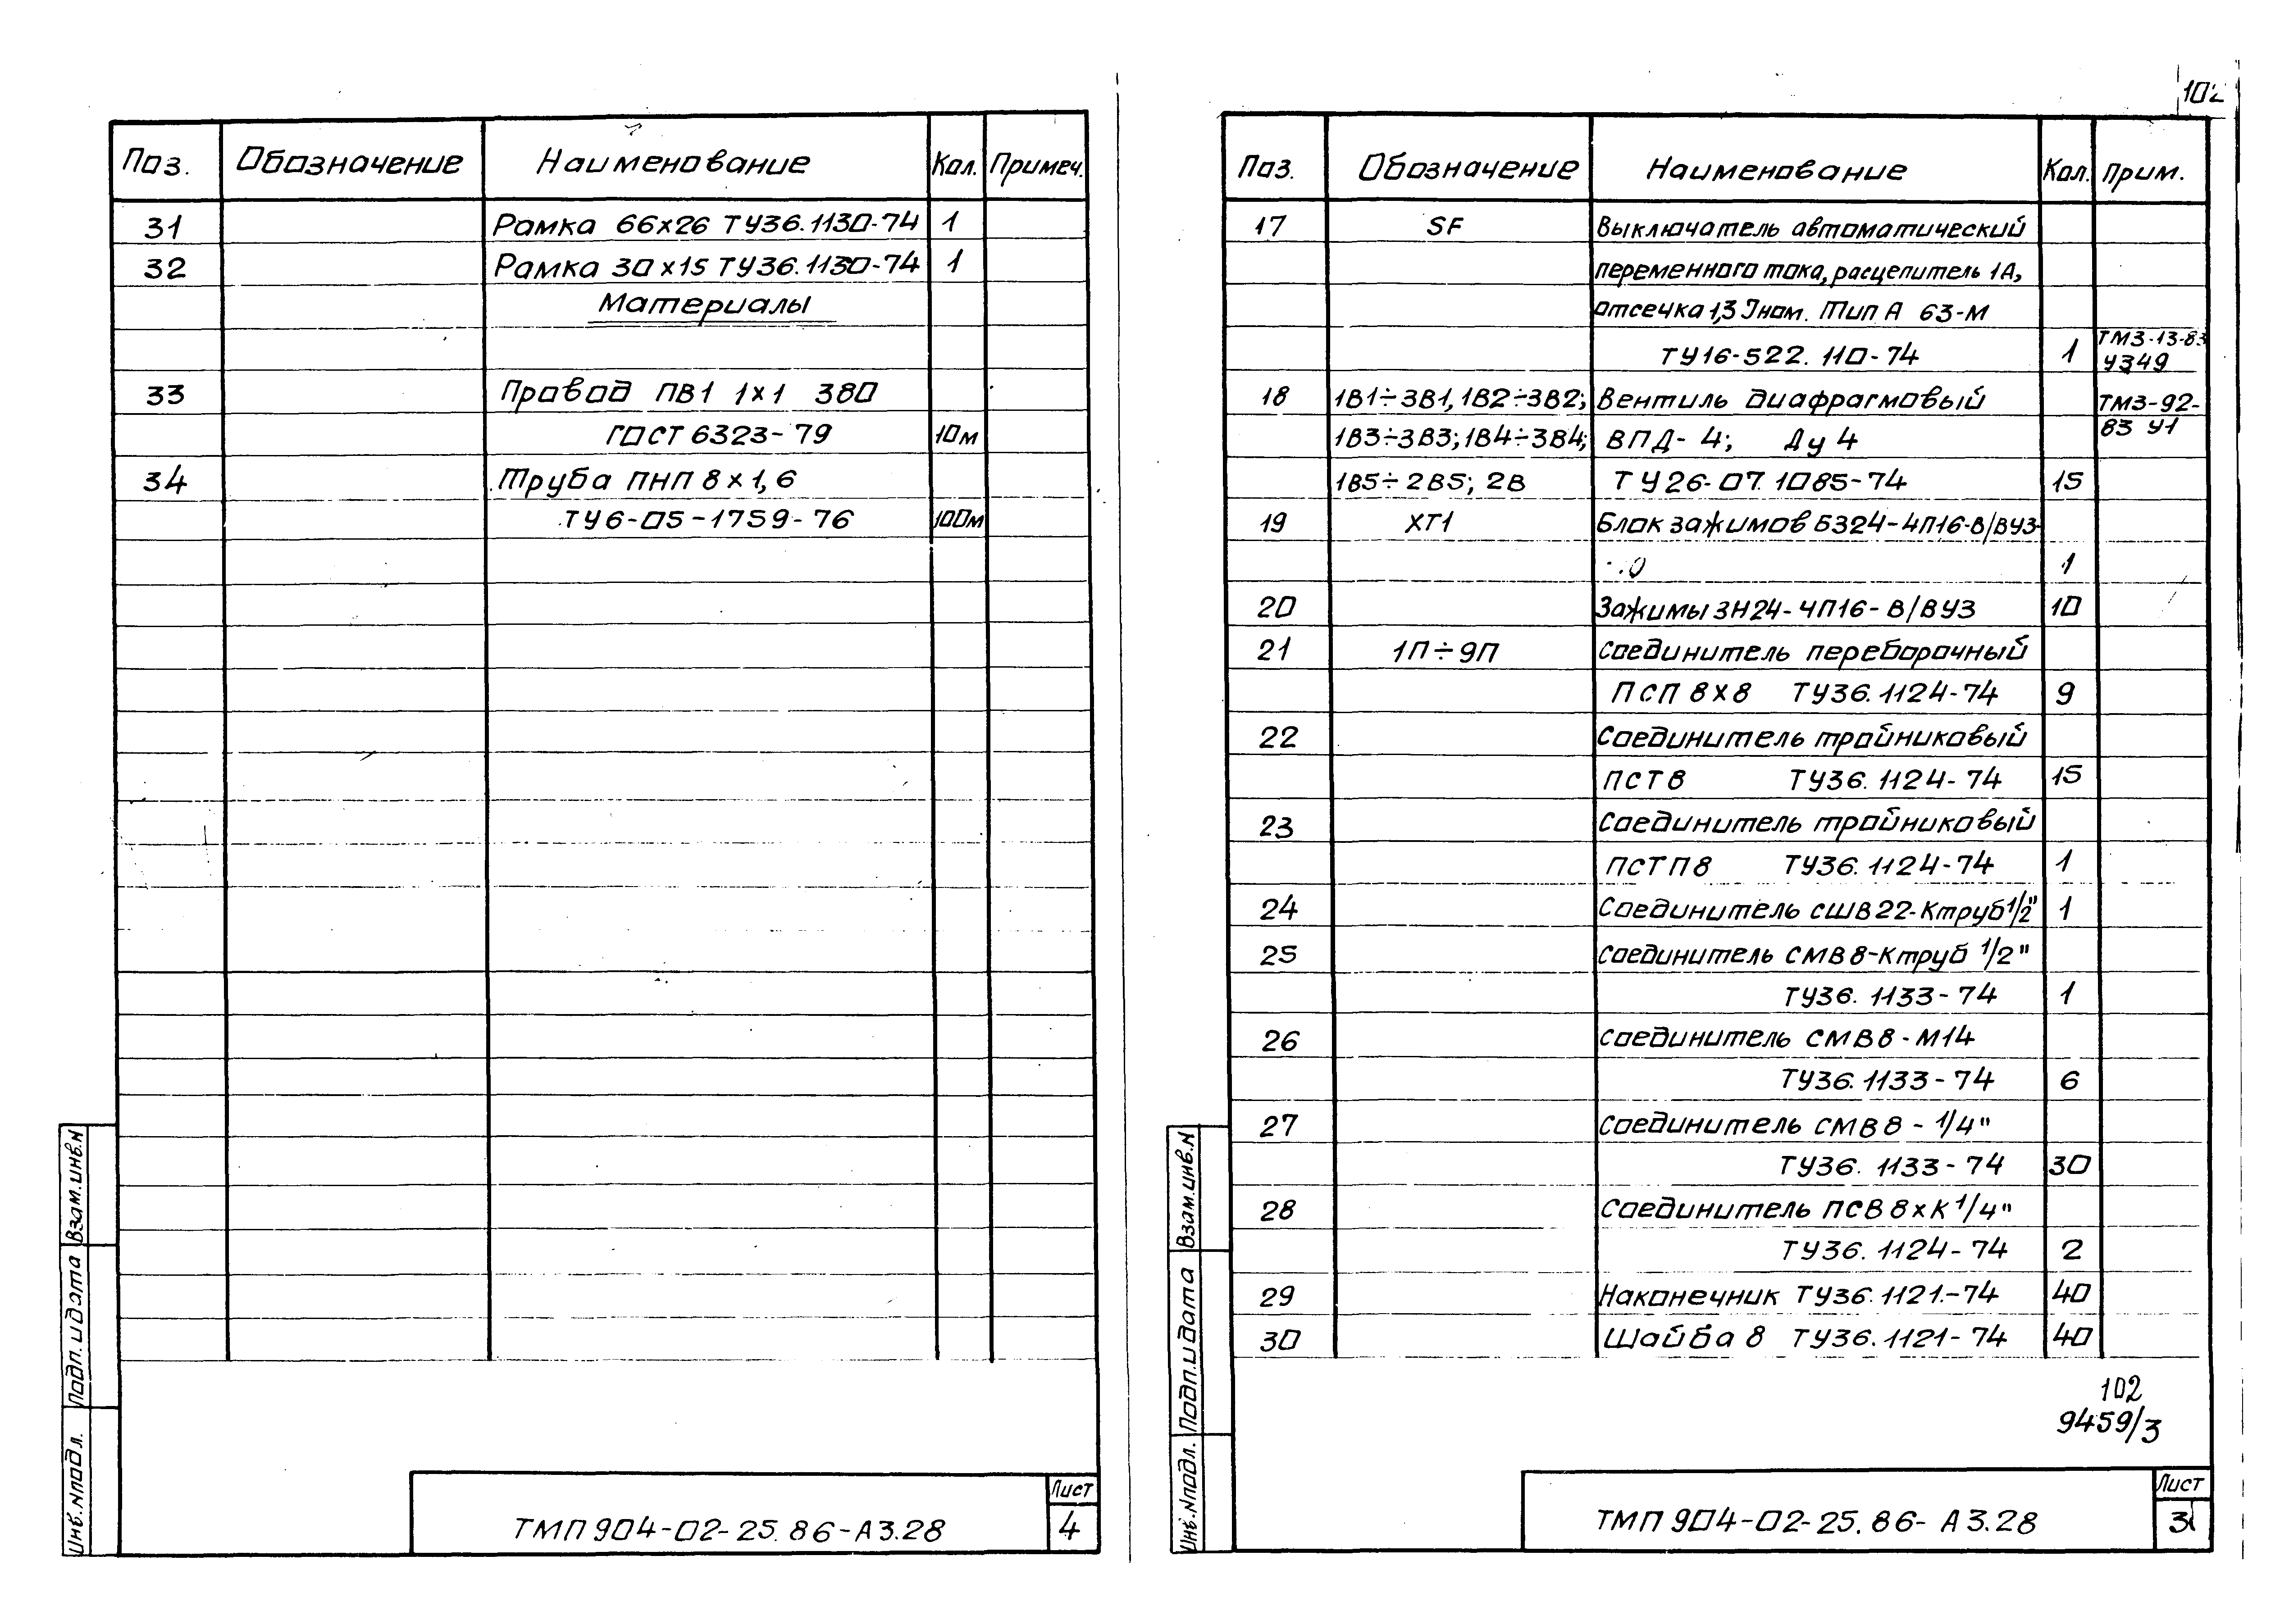 102
Поз. Обозначение Наименование Кол. Примеч.
31 Рамка 66х26 ТУ36.1130-74 1
32 Рамка 30х15 ТУ36.1130-74 1
Материалы
33 Провод ПВ1 1х1 380
ГОСТ 6323-79 10м
34 Труба ПНП 8х1,6
ТУ6-05-1759-76 100м
Взам.инв.N
Подп. и дата
Инв.Nподл.
ТМП 904-02-25.86-А3.28
Лист
4
Поз. Обозначение Наименование Кол. Прим.
17 SF Выключатель автоматический
переменного тока, расцепитель 1А,
отсечка 1,3 Iном. Тип А 63-М
ТУ16-522.110-74 1 ТМ3-13-83
У349
18 1В1÷3В1, 1В2÷3В2; Вентиль диафрагмовый ТМ3-92-
1В3÷3В3; 1В4÷3В4; ВПД-4; Ду 4 83 У1
1В5÷2В5; 2В ТУ26-07.1085-74 15
19 ХТ1 Блок зажимов БЗ24-4П16-В/ВУЗ-
-.0 1
20 Зажимы ЗН24-4П16-В/ВУЗ 10
21 1П÷9П Соединитель переборочный
ПСП 8х8 ТУ36.1124-74 9
22 Соединитель тройниковый
ПСТ8 ТУ36.1124-74 15
23 Соединитель тройниковый
ПСТП8 ТУ36.1124-74 1
24 Соединитель СШВ22-Ктруб1/2" 1
25 Соединитель СМВ8-Ктруб 1/2"
ТУ36.1133-74 1
26 Соединитель СМВ8-М14
ТУ36.1133-74 6
27 Соединитель СМВ8-1/4"
ТУ36.1133-74 30
28 Соединитель ПСВ8хК1/4"
ТУ36.1124-74 2
29 Наконечник ТУ36.1121-74 40
30 Шайба 8 ТУ36.1121-74 40
102
9459/3
Взам.инв.N
Подп.и дата
Инв.Nподл.
ТМП 904-02-25.86-А3.28
Лист
3